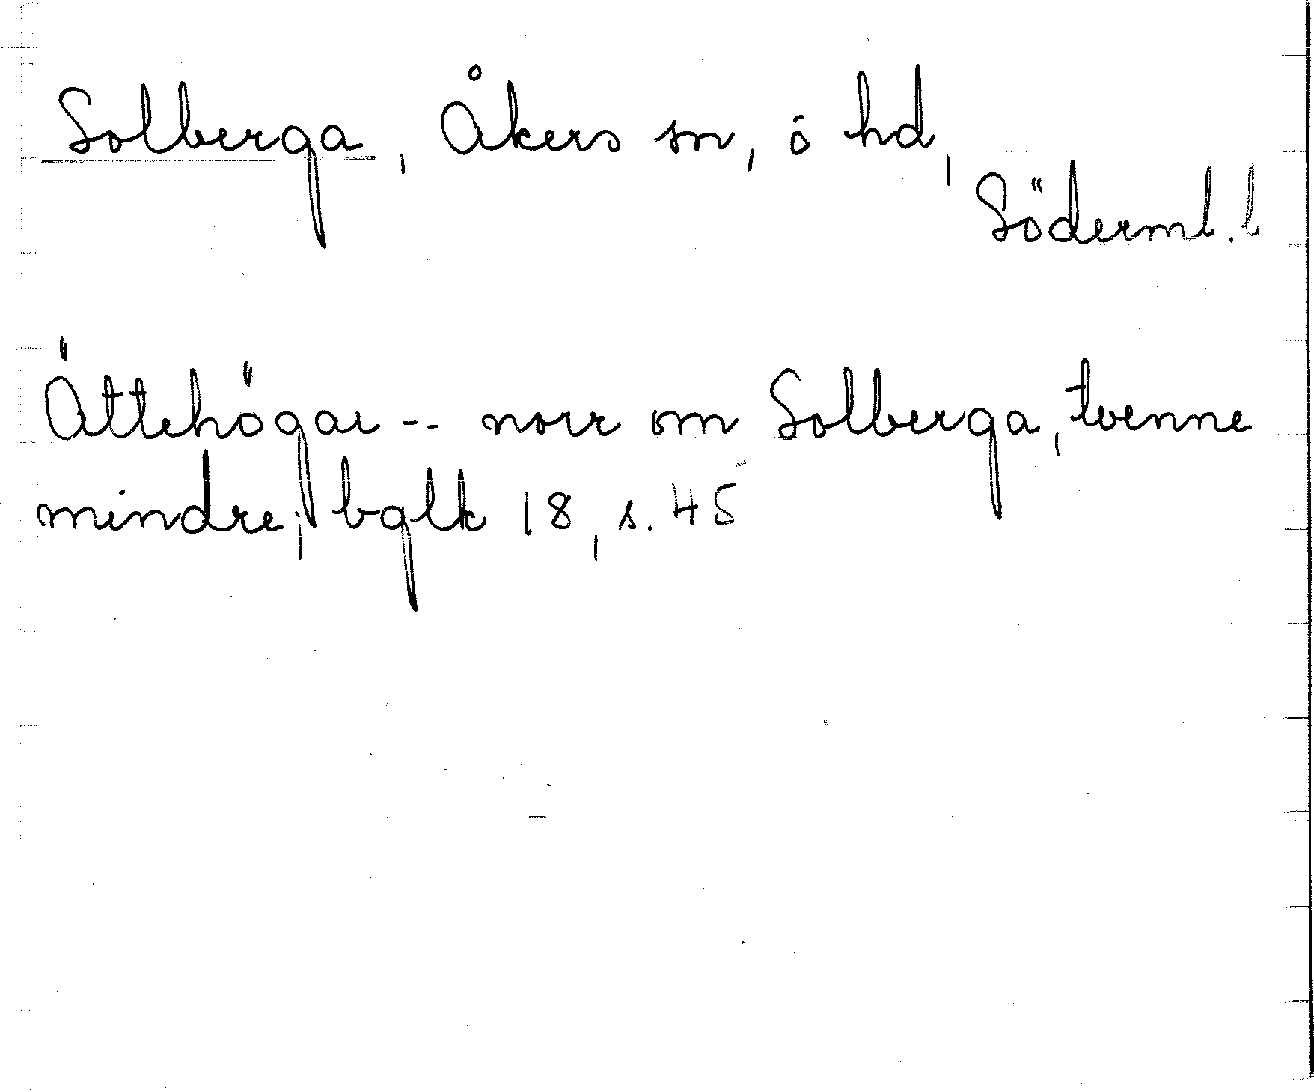 Solberga, Åkers sn, ö hd,
Söderml. l
Ättehögar -- norr om Solberga, tvenne
mindre; bglk 18, s. 45